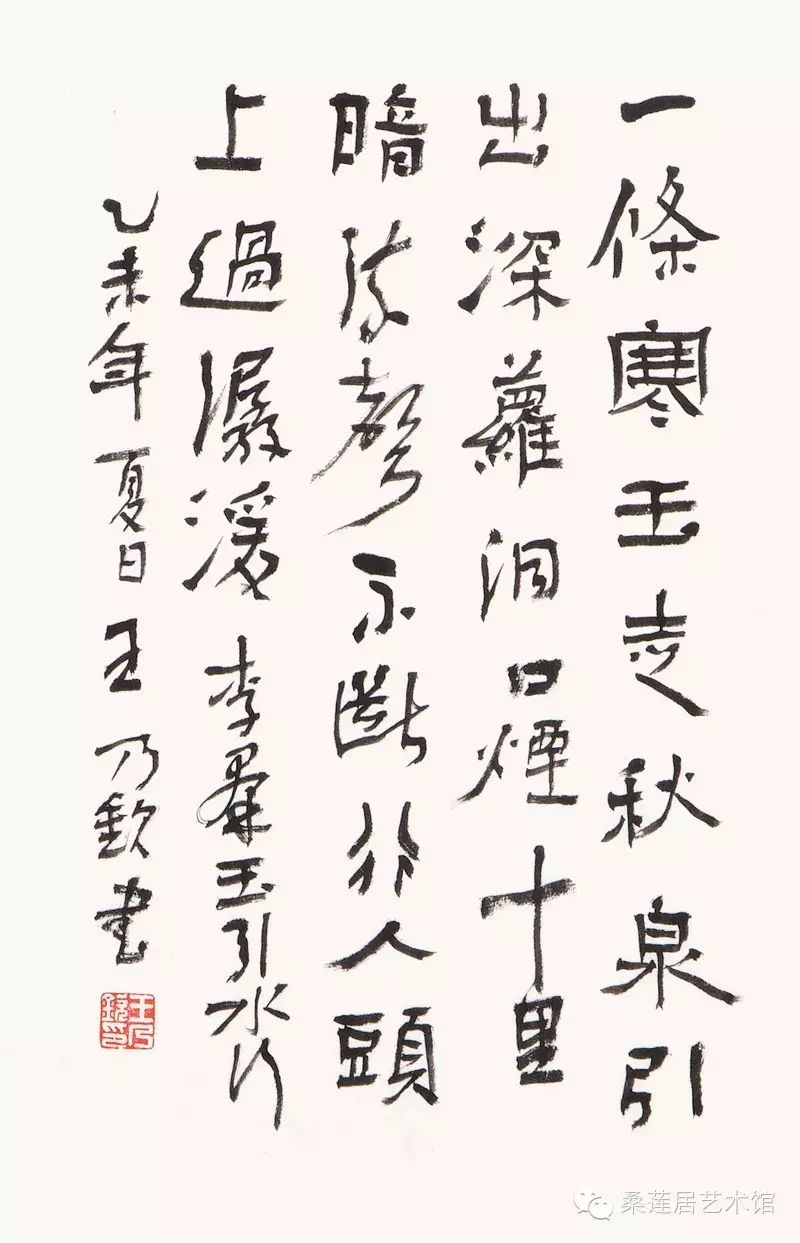 一條寒玉走秋泉引
出深蘿洞口煙十里
暗流聲不斷行人頭
上過潺湲 李羣玉引水行
乙未年夏日王乃欽書
王乃欽印
桑莲居艺术馆